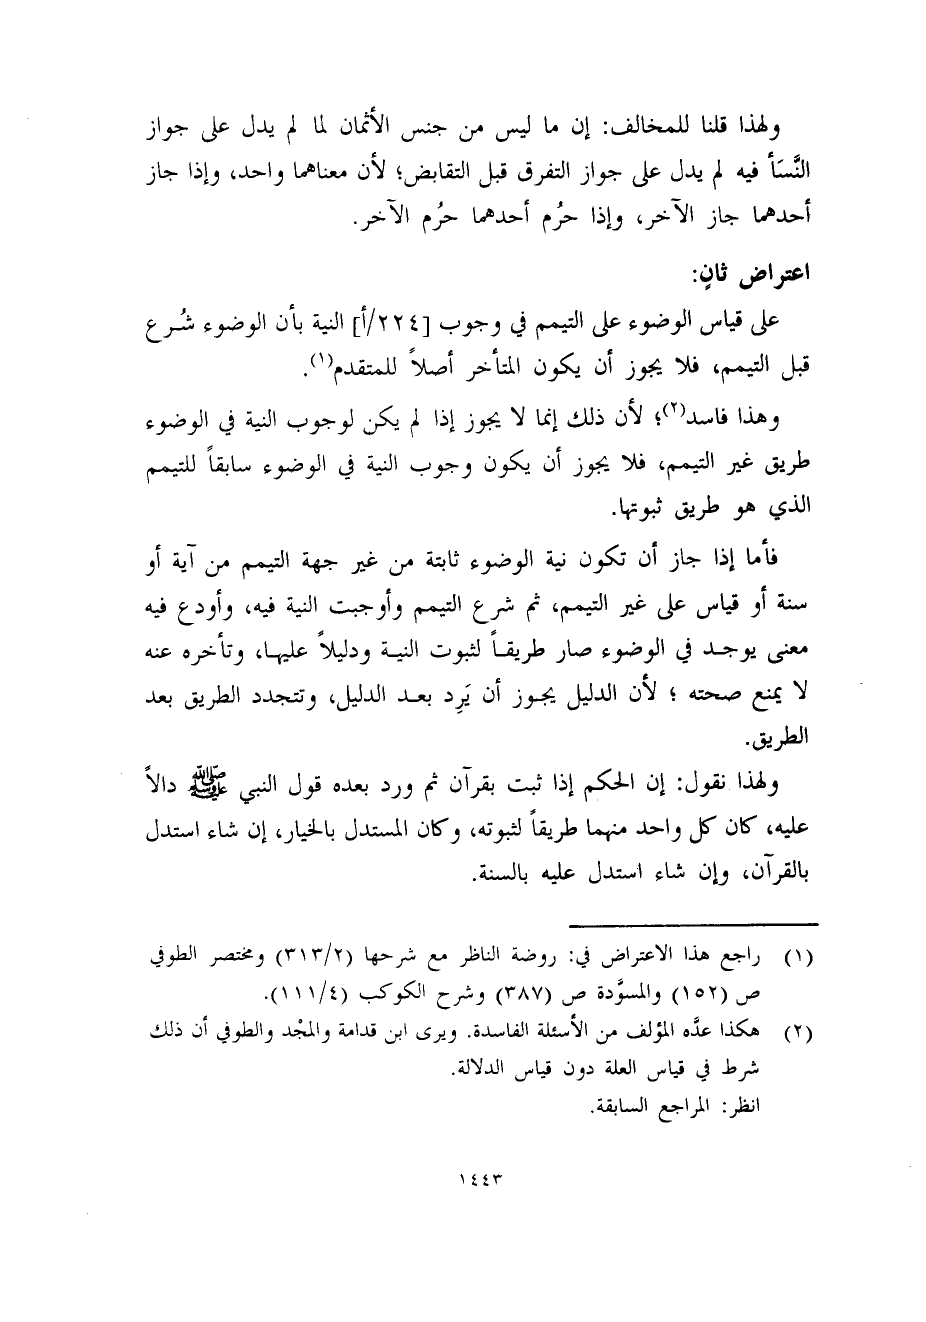 ولهذا قلنا للمخالف: إن ما ليس من جنس الأثمان لما لم يدل على جواز
النَّسَأ فيه لم يدل على جواز التفرق قبل التقابض؛ لأن معناهما واحد، وإذا جاز
أحدهما جاز الآخر، وإذا حرُم أحدهما حرُم الآخر.
اعتراض ثانٍ:
على قياس الوضوء على التيمم في وجوب [٢٢٤/أ] النية بأن الوضوء شُرع
قبل التيمم، فلا يجوز أن يكون المتأخر أصلاً للمتقدم(١).
وهذا فاسد(٢)؛ لأن ذلك إنما لا يجوز إذا لم يكن لوجوب النية في الوضوء
طريق غير التيمم، فلا يجوز أن يكون وجوب النية في الوضوء سابقاً للتيمم
الذي هو طريق ثبوتها.
فأما إذا جاز أن تكون نية الوضوء ثابتة من غير جهة التيمم من آية أو
سنة أو قياس على غير التيمم، ثم شرع التيمم وأوجبت النية فيه، وأودع فيه
معنى يوجد في الوضوء صار طريقاً لثبوت النية ودليلاً عليها، وتأخره عنه
لا يمنع صحته ؛ لأن الدليل يجوز أن يَرِد بعد الدليل، وتتجدد الطريق بعد
الطريق.
ولهذا نقول: إن الحكم إذا ثبت بقرآن ثم ورد بعده قول النبي ﷺ دالاً
عليه، كان كل واحد منهما طريقاً لثبوته، وكان المستدل بالخيار، إن شاء استدل
بالقرآن، وإن شاء استدل عليه بالسنة.
(١) راجع هذا الاعتراض في: روضة الناظر مع شرحها (٣١٣/٢) ومختصر الطوفي
ص (١٥٢) والمسوَّدة ص (٣٨٧) وشرح الكوكب (١١١/٤).
(٢) هكذا عدَّه المؤلف من الأسئلة الفاسدة. ويرى ابن قدامة والمجْد والطوفي أن ذلك
شرط في قياس العلة دون قياس الدلالة.
انظر: المراجع السابقة.
١٤٤٣